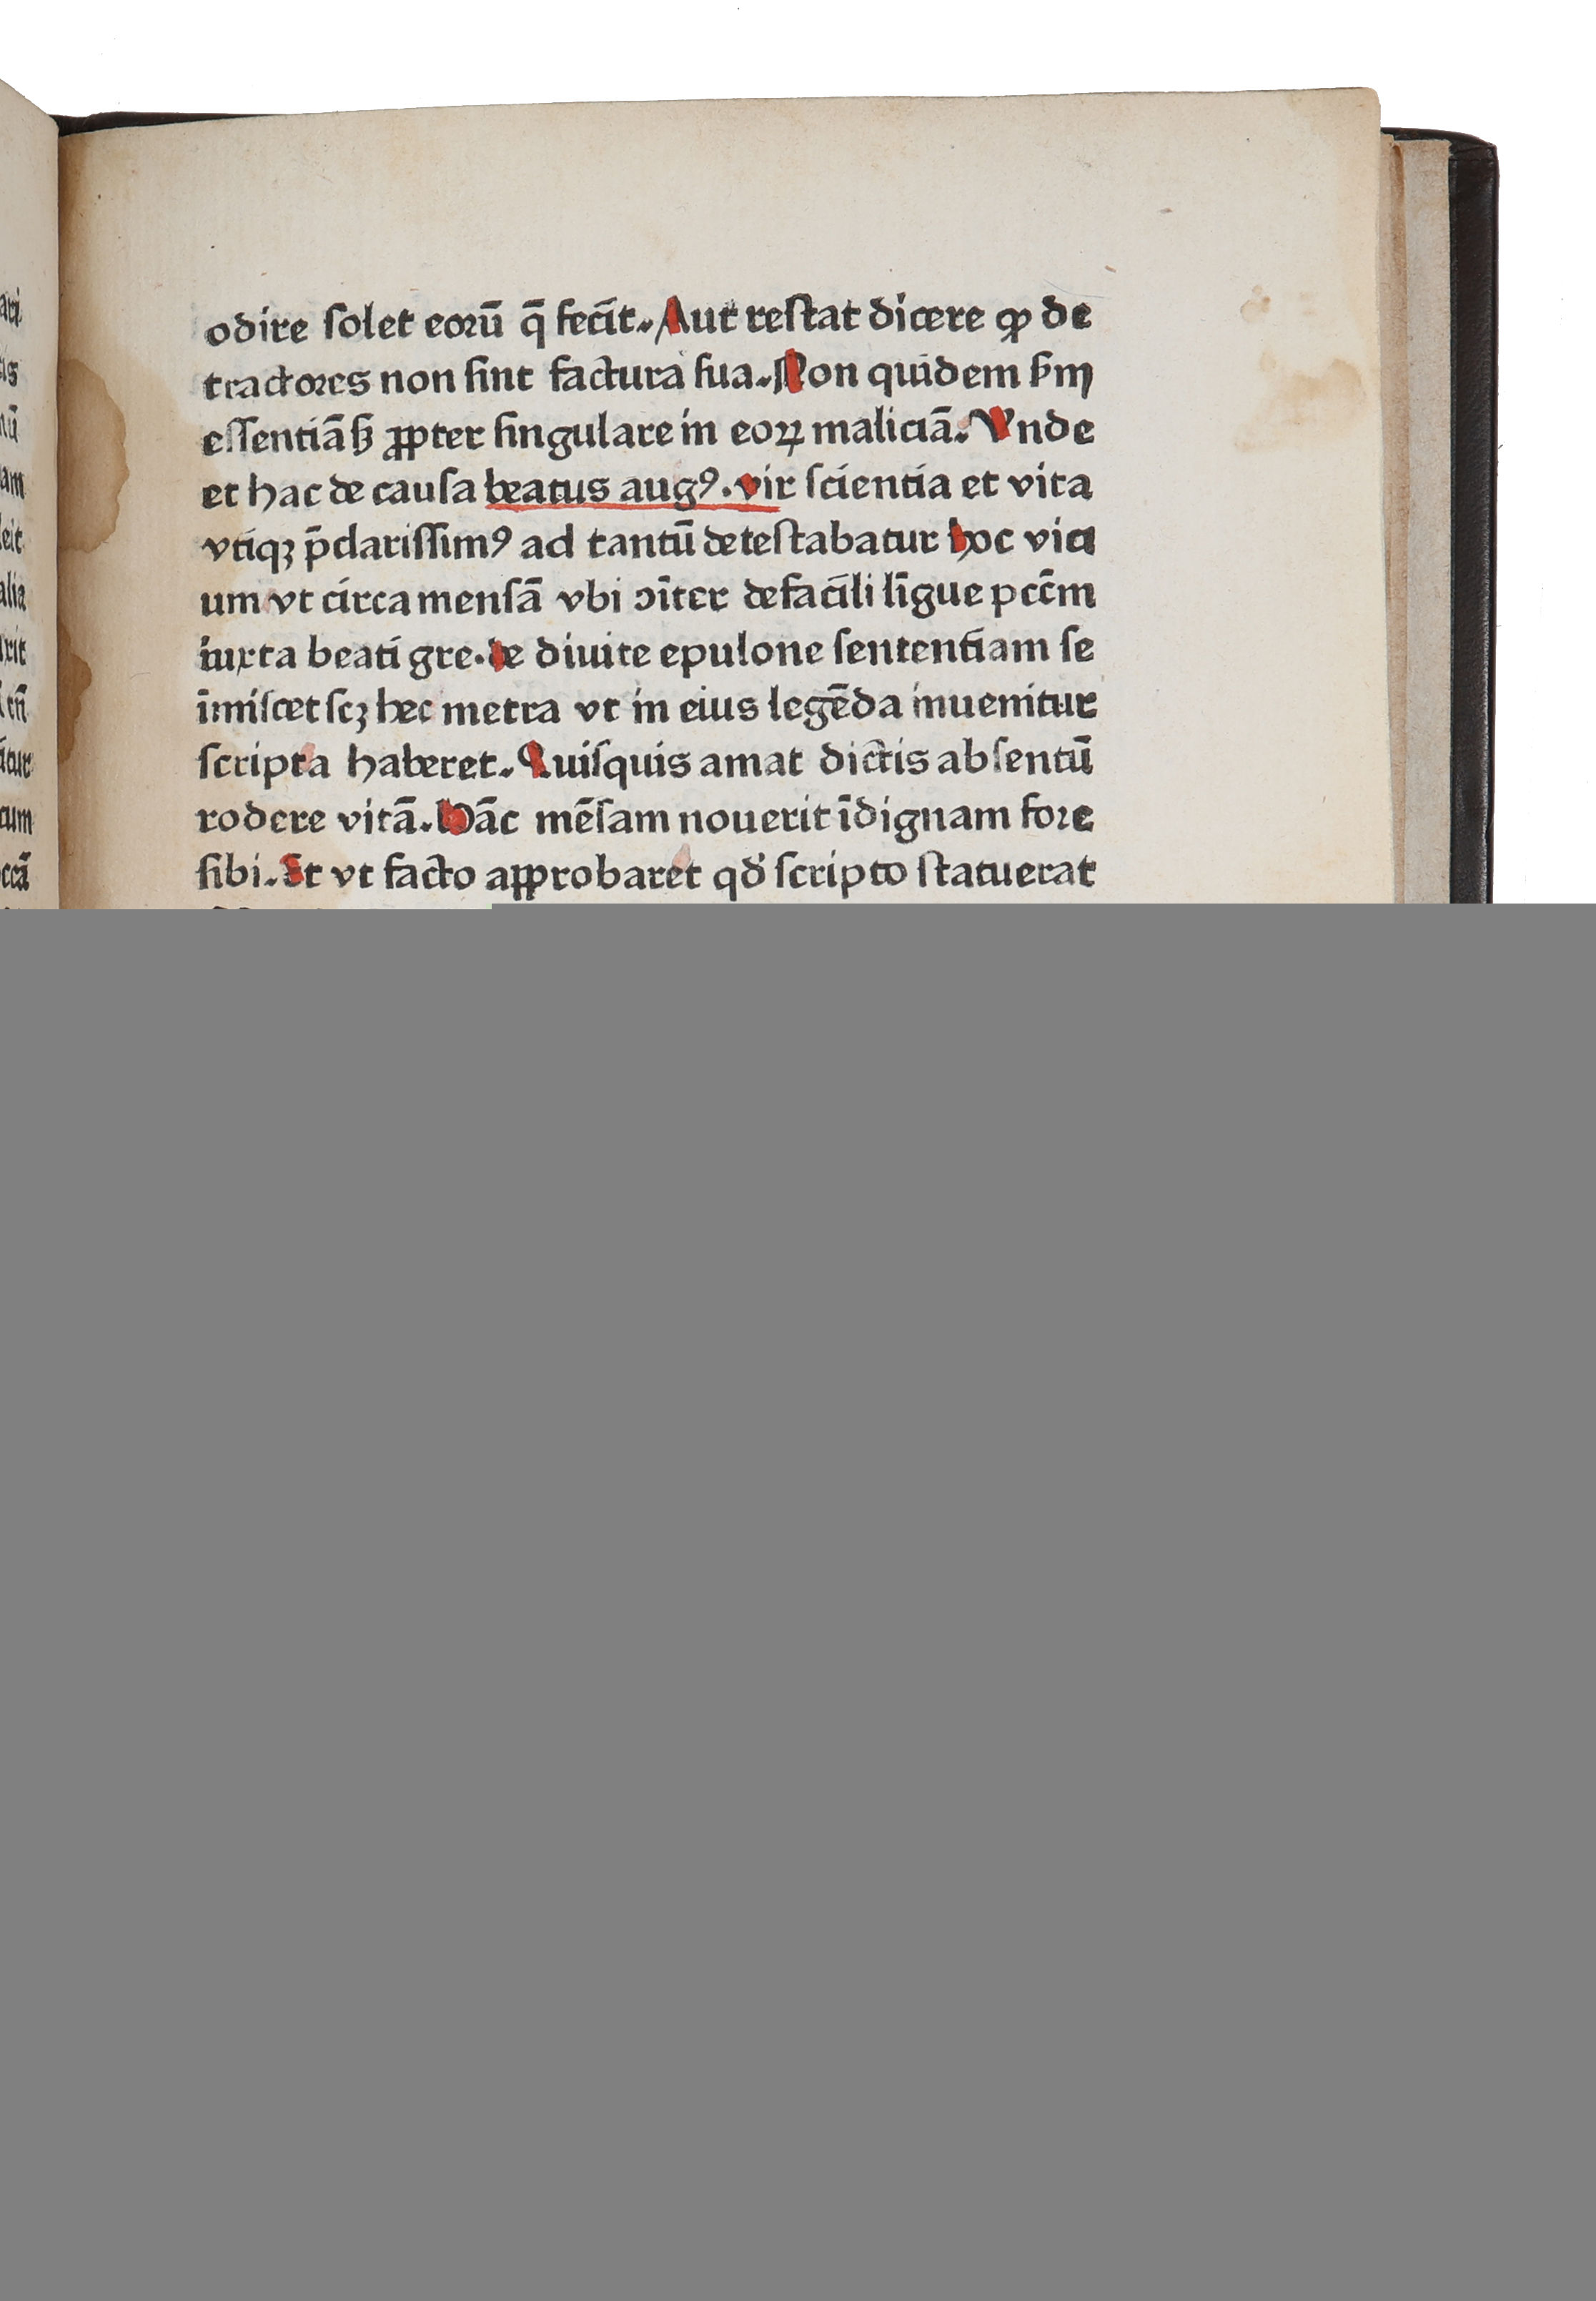 odire solet eorū q̄ fecit. Aut restat dicere ꝙ de
tractores non sint factura sua. Non quidem scꝺm
essentiā sꝫ ꝓpter singulare in eoꝝ maliciā. Vnde
et hac de causa beatus augꝰ. vir scientia et vita
vtiqꝫ p̄clarissimꝰ ad tantū detestabatur hoc vici
um vt circa mensā vbi ↄīter de facili līgue pcc̄m
iuxta beati gre. de diuite epulone sententiam se
īmiscet scꝫ hec metra vt in eius legēda inuenitur
scripta haberet. Quisquis amat dictis absentū
rodere vitā. Hāc mēsam nouerit īdignam fore
sibi. Et vt facto aꝓprobaret qđ scripto statuerat